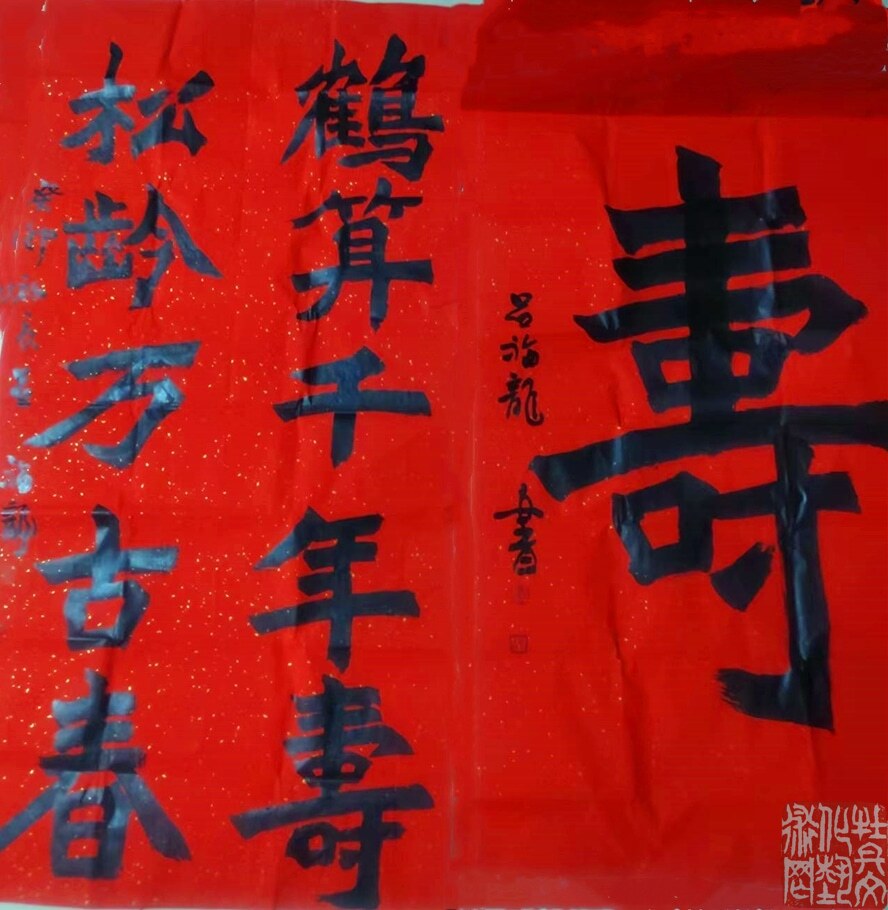 壽
吕福龍 書
鶴算千年壽
松齡万古春